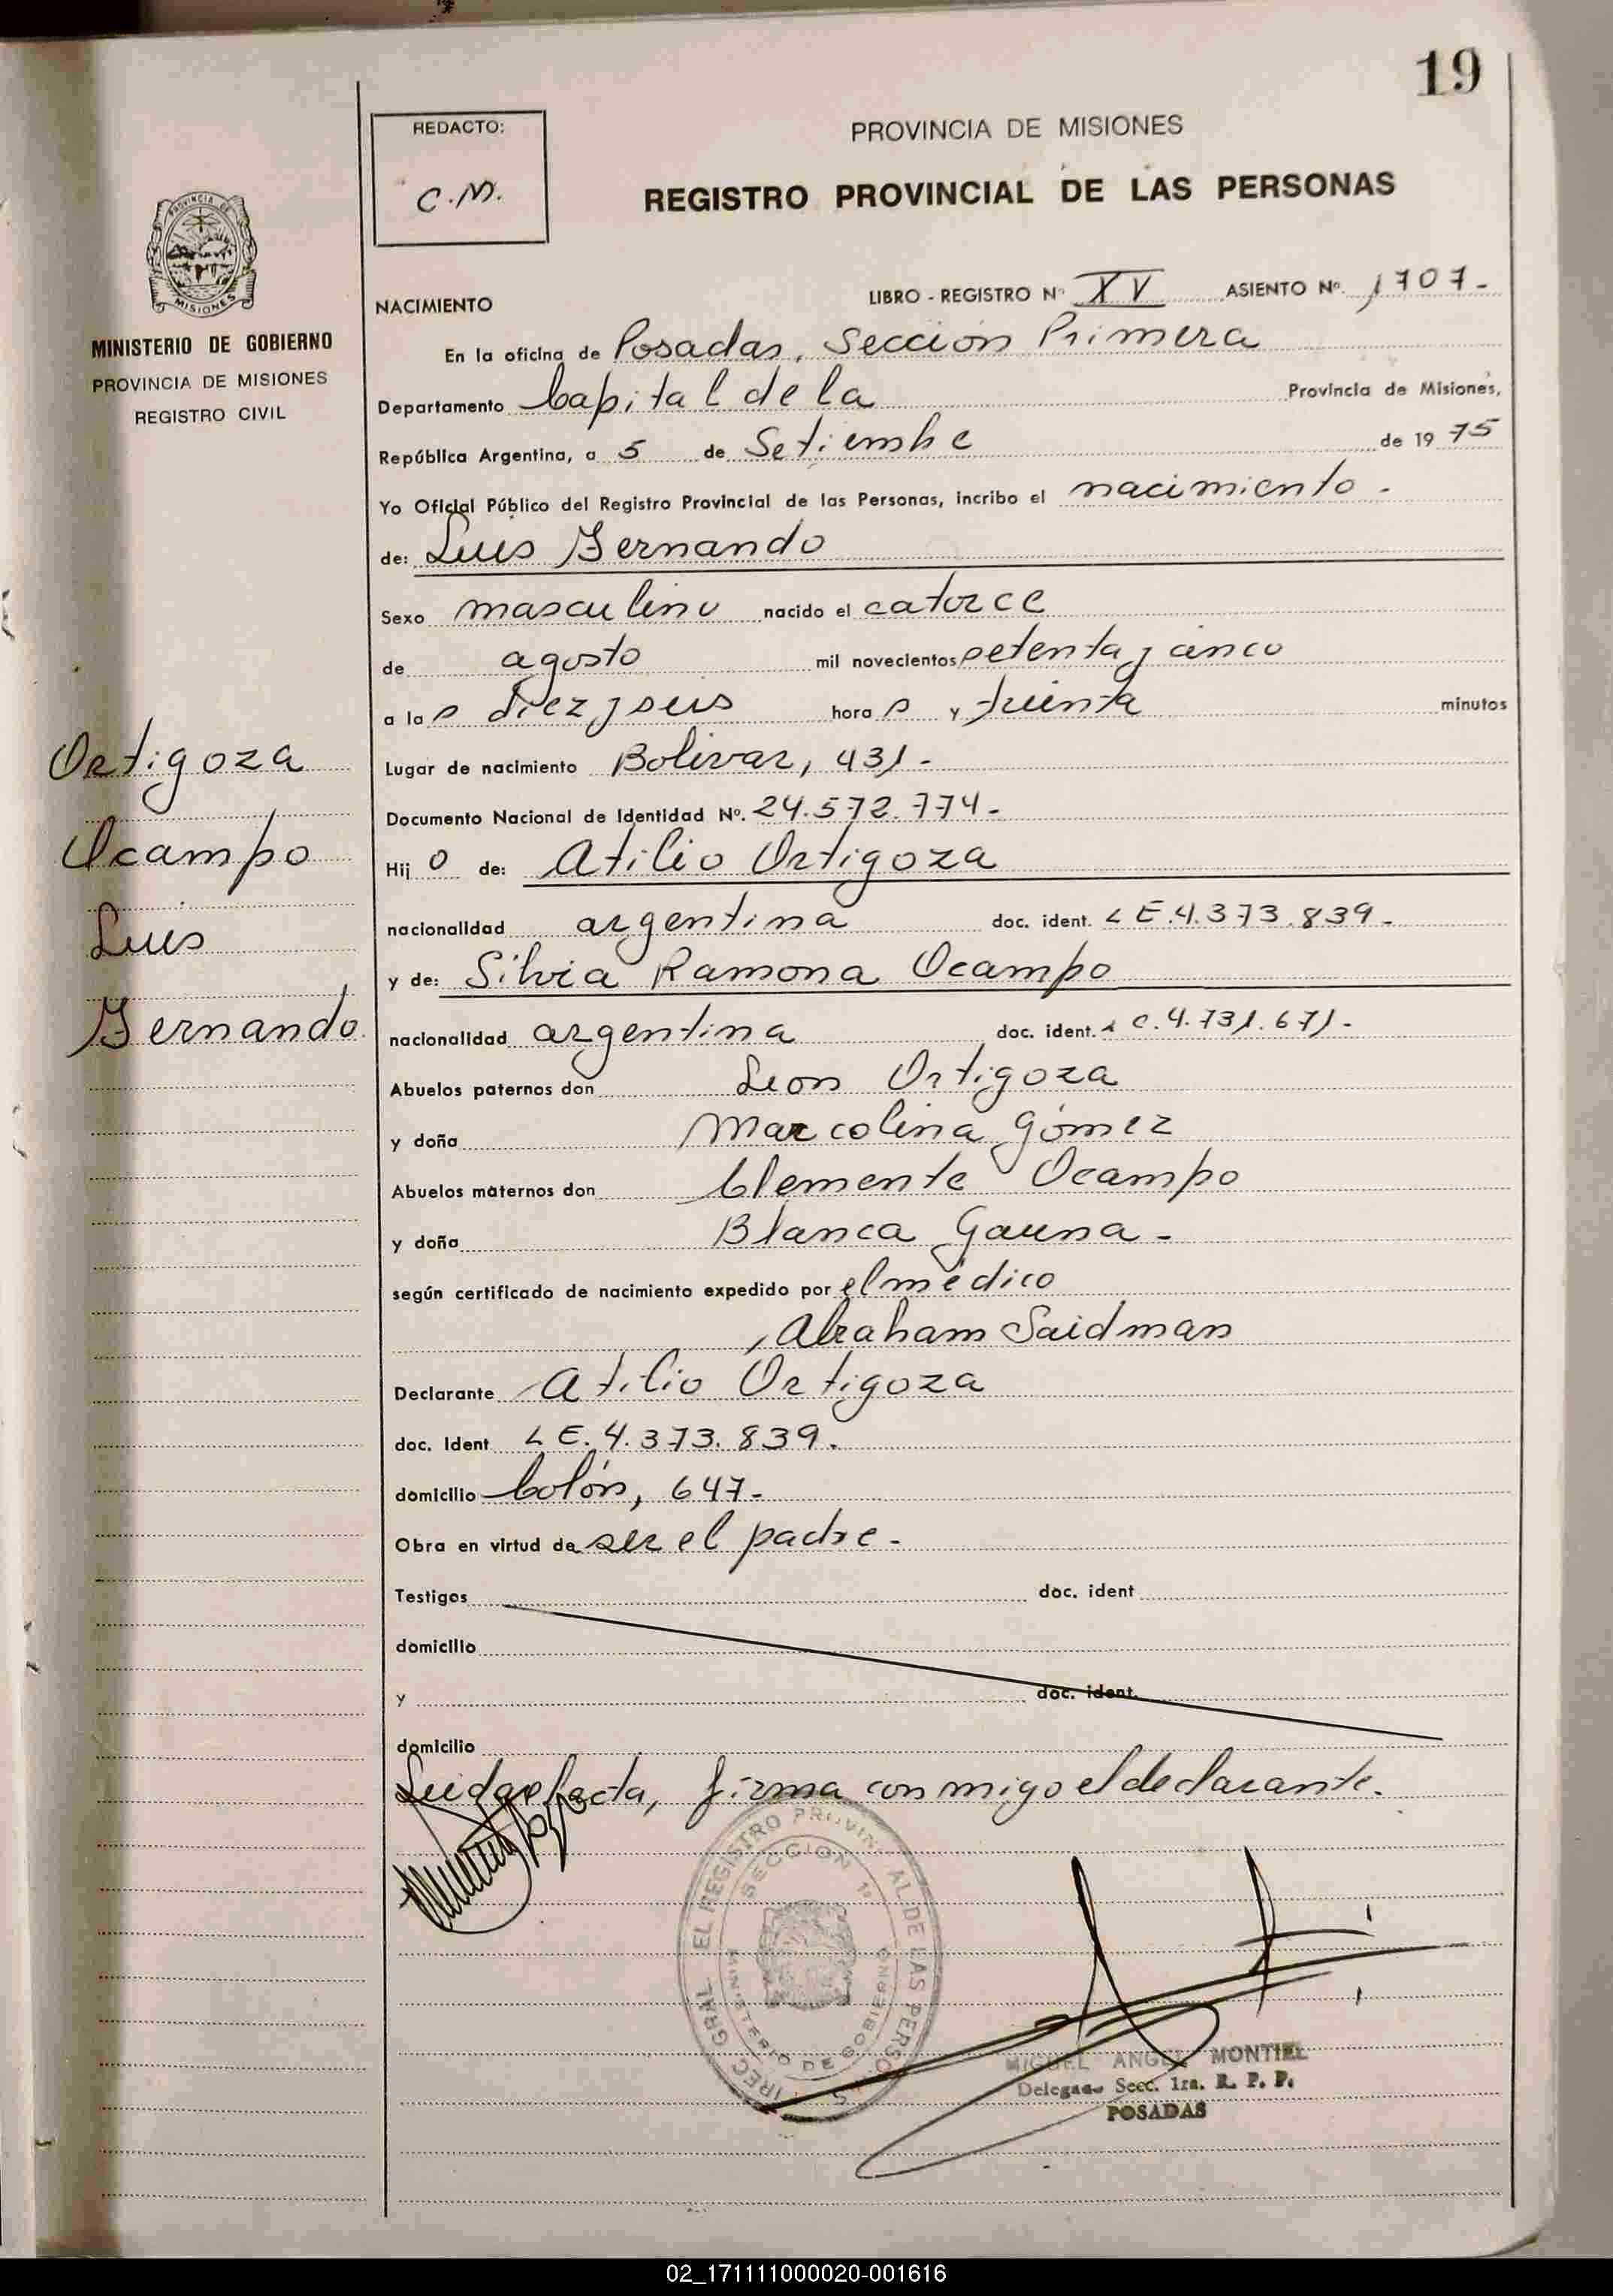 19
REDACTO:
C.M.
PROVINCIA DE MISIONES
REGISTRO PROVINCIAL DE LAS PERSONAS
PROVINCIA DE
MISIONES
MINISTERIO DE GOBIERNO
PROVINCIA DE MISIONES
REGISTRO CIVIL
NACIMIENTO LIBRO - REGISTRO Nº XV ASIENTO Nº 1707-
En la oficina de Posadas, Sección Primera
Departamento Capital de la Provincia de Misiones,
República Argentina, a 5 de Setiembre de 1975
Yo Oficial Público del Registro Provincial de las Personas, incribo el nacimiento -
de: Luis Fernando
Sexo masculino nacido el catorce
de agosto mil novecientos setenta y cinco
a las diez y seis horas y treinta minutos
Lugar de nacimiento Bolivar, 431-
Documento Nacional de Identidad Nº. 24.572.774-
Hijo de: Atilio Ortigoza
nacionalidad argentina doc. ident. LE.4.373.839-
y de: Silvia Ramona Ocampo
nacionalidad argentina doc. ident. LC.4.731.671-
Abuelos paternos don Leon Ortigoza
y doña Marcolina Gómez
Abuelos maternos don Clemente Ocampo
y doña Blanca Gauna-
según certificado de nacimiento expedido por el médico
Abraham Saidman
Declarante Atilio Ortigoza
doc. Ident LE.4.373.839.
domicilio Colón, 647-
Obra en virtud de ser el padre-
Testigos doc. ident
domicilio
y doc. ident.
domicilio
Leida el acta, firma conmigo el declarante.
Ortigoza
Ocampo
Luis
Fernando
DIREC GRAL EL REGISTRO PROVINCIAL DE LAS PERSONAS
SECCION 1º
MINISTERIO DE GOBIERNO
MIGUEL ANGEL MONTIEL
Delegado Secc. 1ra. R. P. P.
POSADAS
02_171111000020-001616